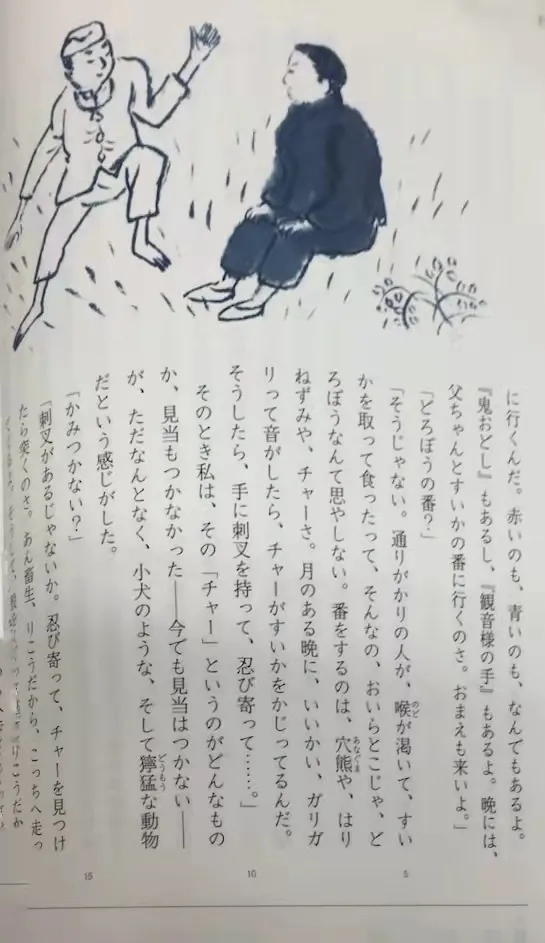 に行くんだ。赤いのも、青いのも、なんでもあるよ。
『鬼おどし』もあるし、『観音様の手』もあるよ。晩には、
父ちゃんとすいかの番に行くのさ。おまえも来いよ。」
「どろぼうの番？」
「そうじゃない。通りがかりの人が、喉が渇いて、すい
のど
かを取って食ったって、そんなの、おいらとこじゃ、ど
ろぼうなんて思やしない。番をするのは、穴熊や、はり
あなぐま
ねずみや、チャーさ。月のある晩に、いいかい、ガリガ
リって音がしたら、チャーがすいかをかじってるんだ。
そうしたら、手に刺叉を持って、忍び寄って……。」
そのとき私は、その「チャー」というのがどんなもの
か、見当もつかなかった――今でも見当はつかない――
が、ただなんとなく、小犬のような、そして獰猛な動物
どうもう
だという感じがした。
「かみつかない？」
「刺叉があるじゃないか。忍び寄って、チャーを見つけ
たら突くのさ。あん畜生、りこうだから、こっちへ走っ
5
10
15